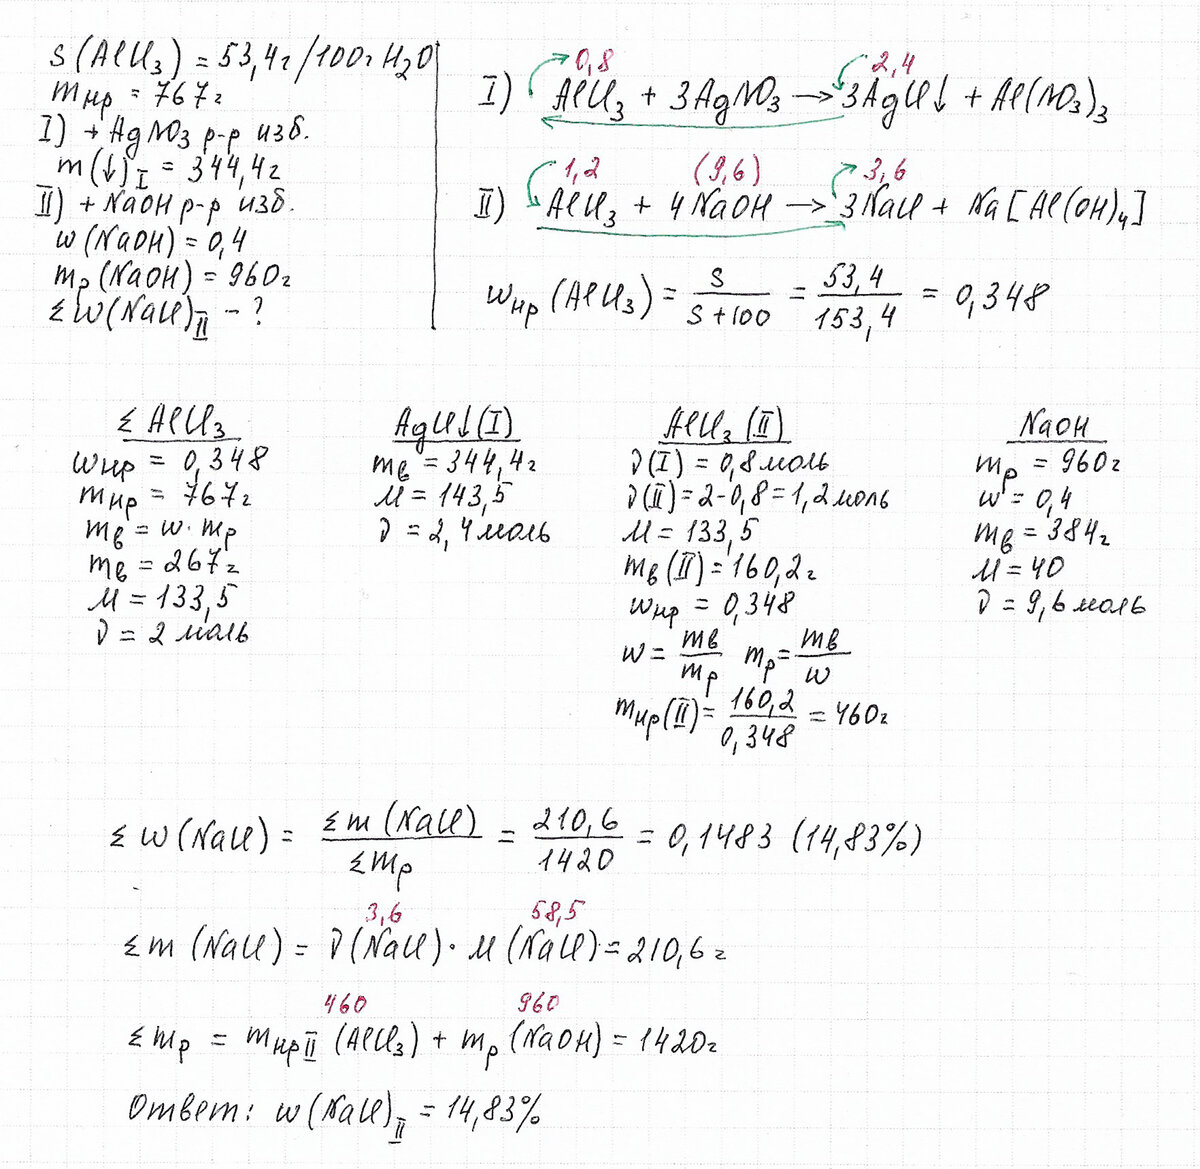 S(AlCl₃) = 53,4г/100г H₂O
mнр = 767г
I) + AgNO₃ р-р изб.
m(↓)I = 344,4г
II) + NaOH р-р изб.
w(NaOH) = 0,4
mр(NaOH) = 960г
Σw(NaCl)II - ?
0,8 2,4
I) AlCl₃ + 3AgNO₃ → 3AgCl↓ + Al(NO₃)₃
1,2 (9,6) 3,6
II) AlCl₃ + 4NaOH → 3NaCl + Na[Al(OH)₄]
wнр(AlCl₃) = S/(S+100) = 53,4/153,4 = 0,348
Σ AlCl₃
wнр = 0,348
mнр = 767г
mв = w·mр
mв = 267г
M = 133,5
ν = 2 моль
AgCl↓(I)
mв = 344,4г
M = 143,5
ν = 2,4 моль
AlCl₃(II)
ν(I) = 0,8 моль
ν(II) = 2-0,8 = 1,2 моль
M = 133,5
mв(II) = 160,2г
wнр = 0,348
w = mв/mр mр = mв/w
mнр(II) = 160,2/0,348 = 460г
NaOH
mр = 960г
w = 0,4
mв = 384г
M = 40
ν = 9,6 моль
Σ w(NaCl) = Σm(NaCl)/Σmр = 210,6/1420 = 0,1483 (14,83%)
3,6 58,5
Σm(NaCl) = ν(NaCl)·M(NaCl) = 210,6г
460 960
Σmр = mнрII(AlCl₃) + mр(NaOH) = 1420г
Ответ: w(NaCl)II = 14,83%